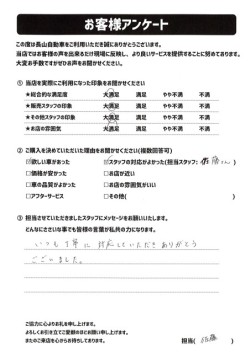 お客様アンケート
この度は長山自動車をご利用いただき誠にありがとうございます。
当店ではお客様の声を出来るだけ現場に反映し、より良いサービスを提供することに努めております。
大変お手数ですがぜひお声をお聞かせください。
① 当店を実際にご利用になった印象をお聞かせください
★総合的な満足度 大満足 満足 やや不満 不満
★販売スタッフの印象 大満足 満足 やや不満 不満
★その他スタッフの印象 大満足 満足 やや不満 不満
★お店の雰囲気 大満足 満足 やや不満 不満
② ご購入を決めていただいた理由をお聞かせください(複数回答可)
欲しい車があった スタッフの対応がよかった(担当スタッフ: 佐藤さん)
□価格が安かった □お店が近い
□車の品質がよかった □お店の雰囲気がいい
□アフターサービス □その他( )
③ 担当させていただきましたスタッフにメッセージをお願いいたします。
どんなにささいな事でも皆様の言葉が私共の力になります。
いつも丁寧に対応していただきありがとう
ございました。
ご協力に心よりお礼を申し上げます。
よろしくお引き立てご愛顧のほどお願い申し上げます。
またのご来店を心からお待ちしております。
担当( 佐藤 )